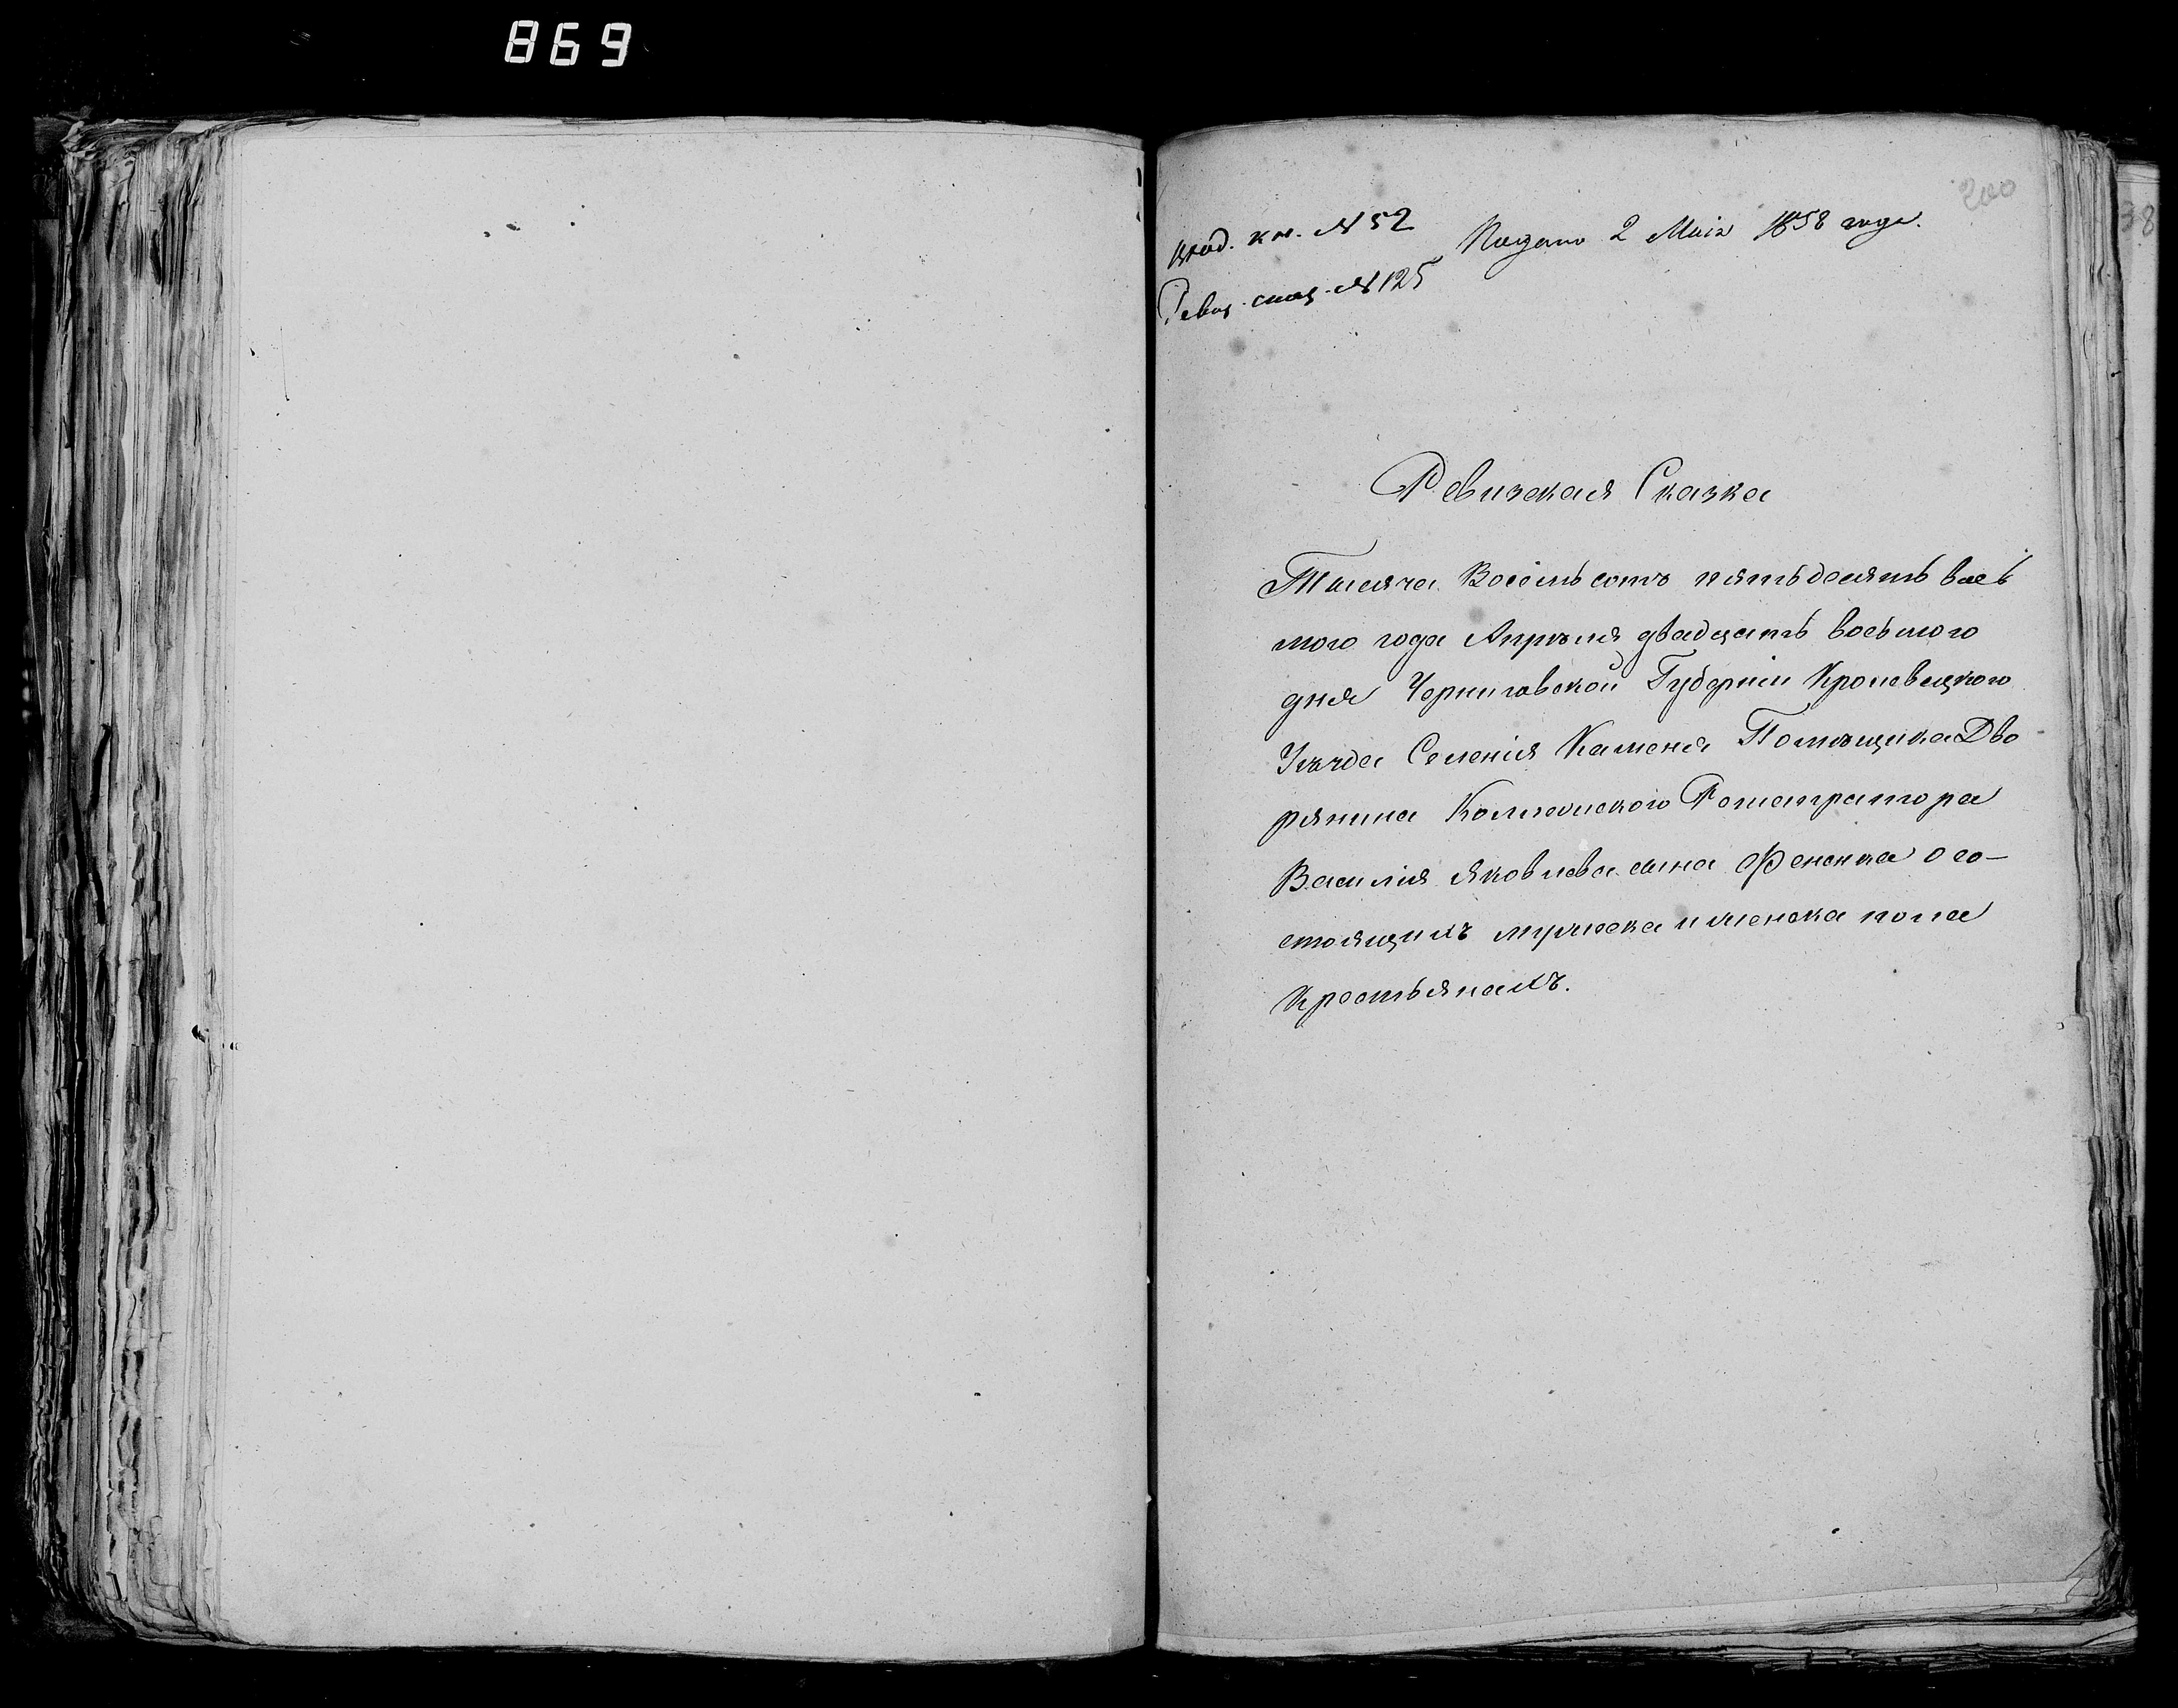 869
200
38
вход. кн. № 52 Подано 2 Маія 1858 года.
Ревиз. сказ. № 125
Ревизская Сказка
Тысяча Восемьсотъ пятьдесятъ вось
мого года Апрѣля двадцать восьмого
дня Черниговской Губерніи Кролевецкого
Уѣзда Селенія Каменя Помѣщика Дво
рянина Коллежского Регистратора
Василія Яковлева сына о со-
стоящихъ мужеска и женска пола
Крестьянахъ.